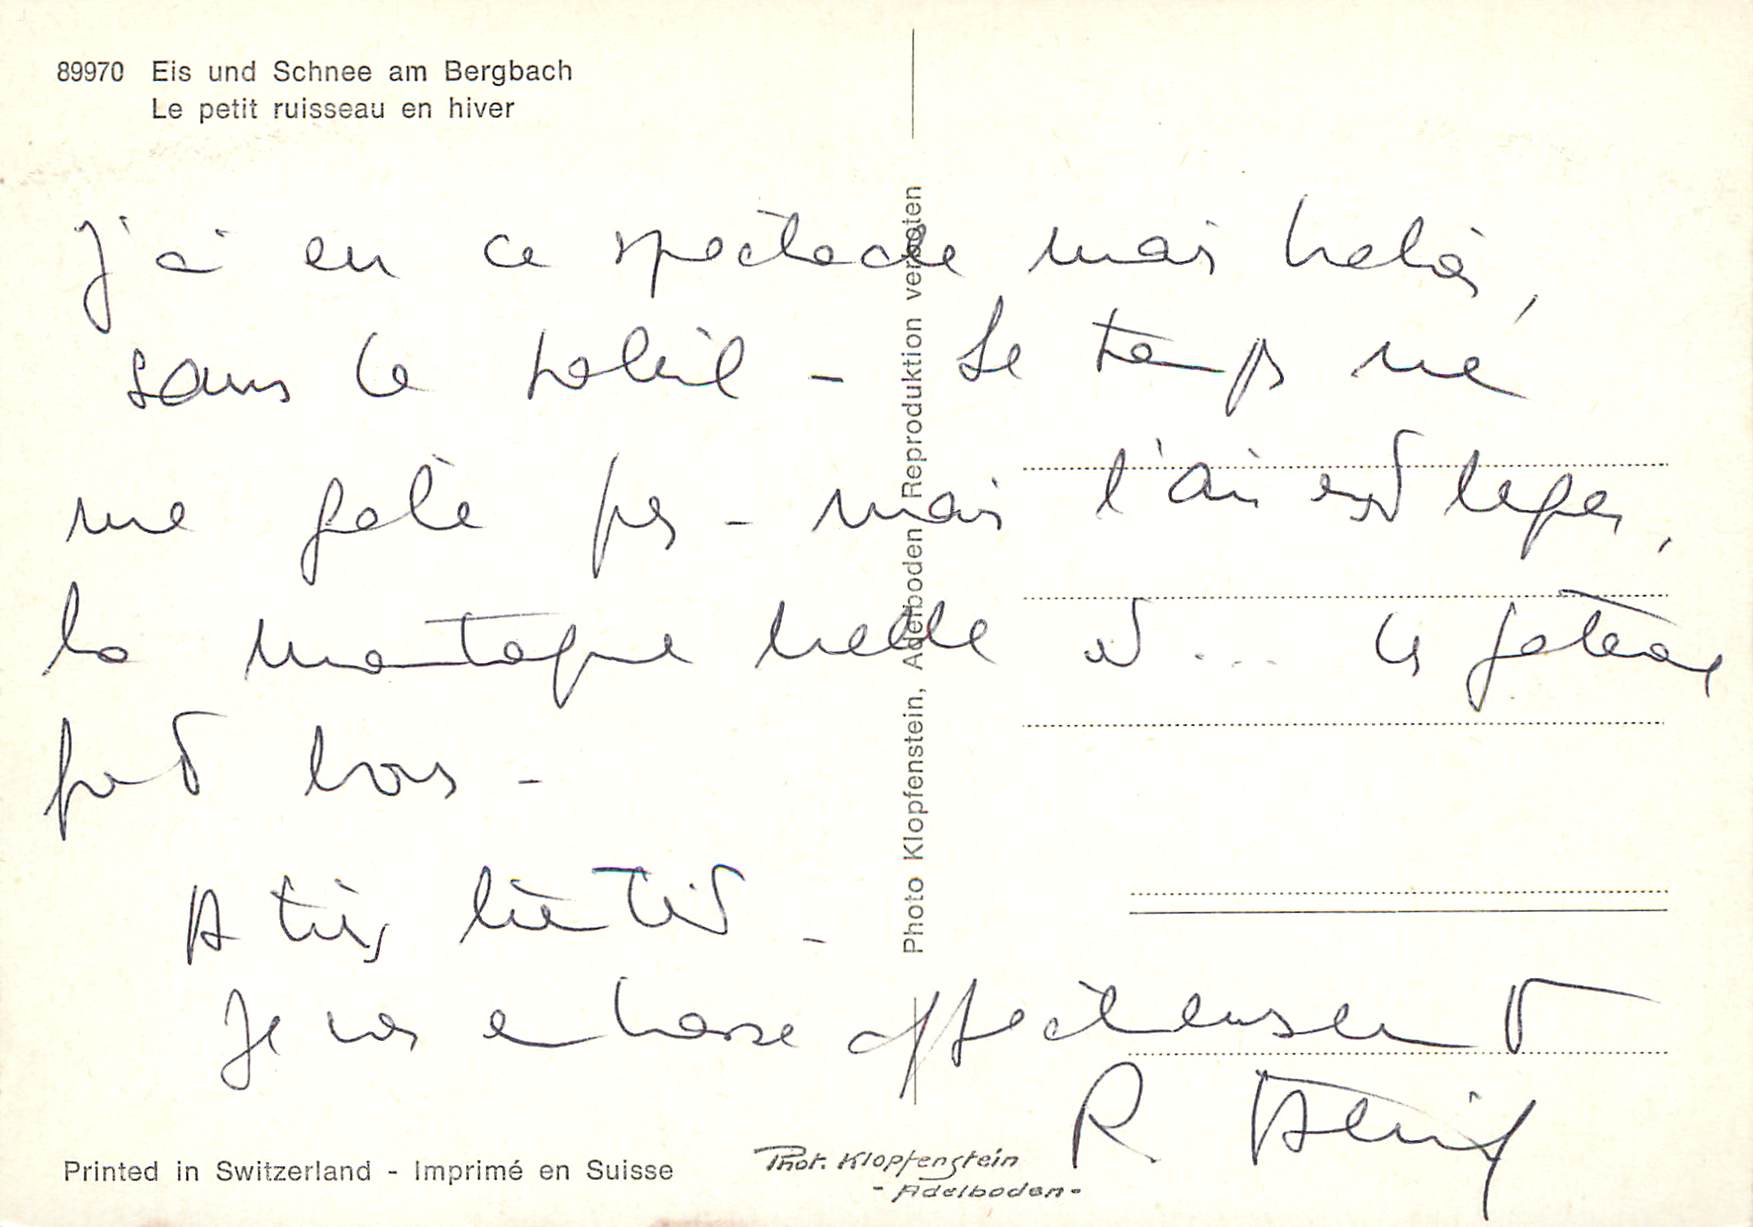 89970 Eis und Schnee am Bergbach
Le petit ruisseau en hiver
J'ai eu ce spectacle mais hélas,
sans le soleil - Le temps ne
me gâte pas - mais l'air est léger,
la montagne belle et ... les gâteaux
sont bons -
A très bientôt -
Je vous embrasse affectueusement
R
Photo Klopfenstein, Adelboden Reproduktion verboten
Printed in Switzerland - Imprimé en Suisse
Phot. Klopfenstein
- Adelboden -